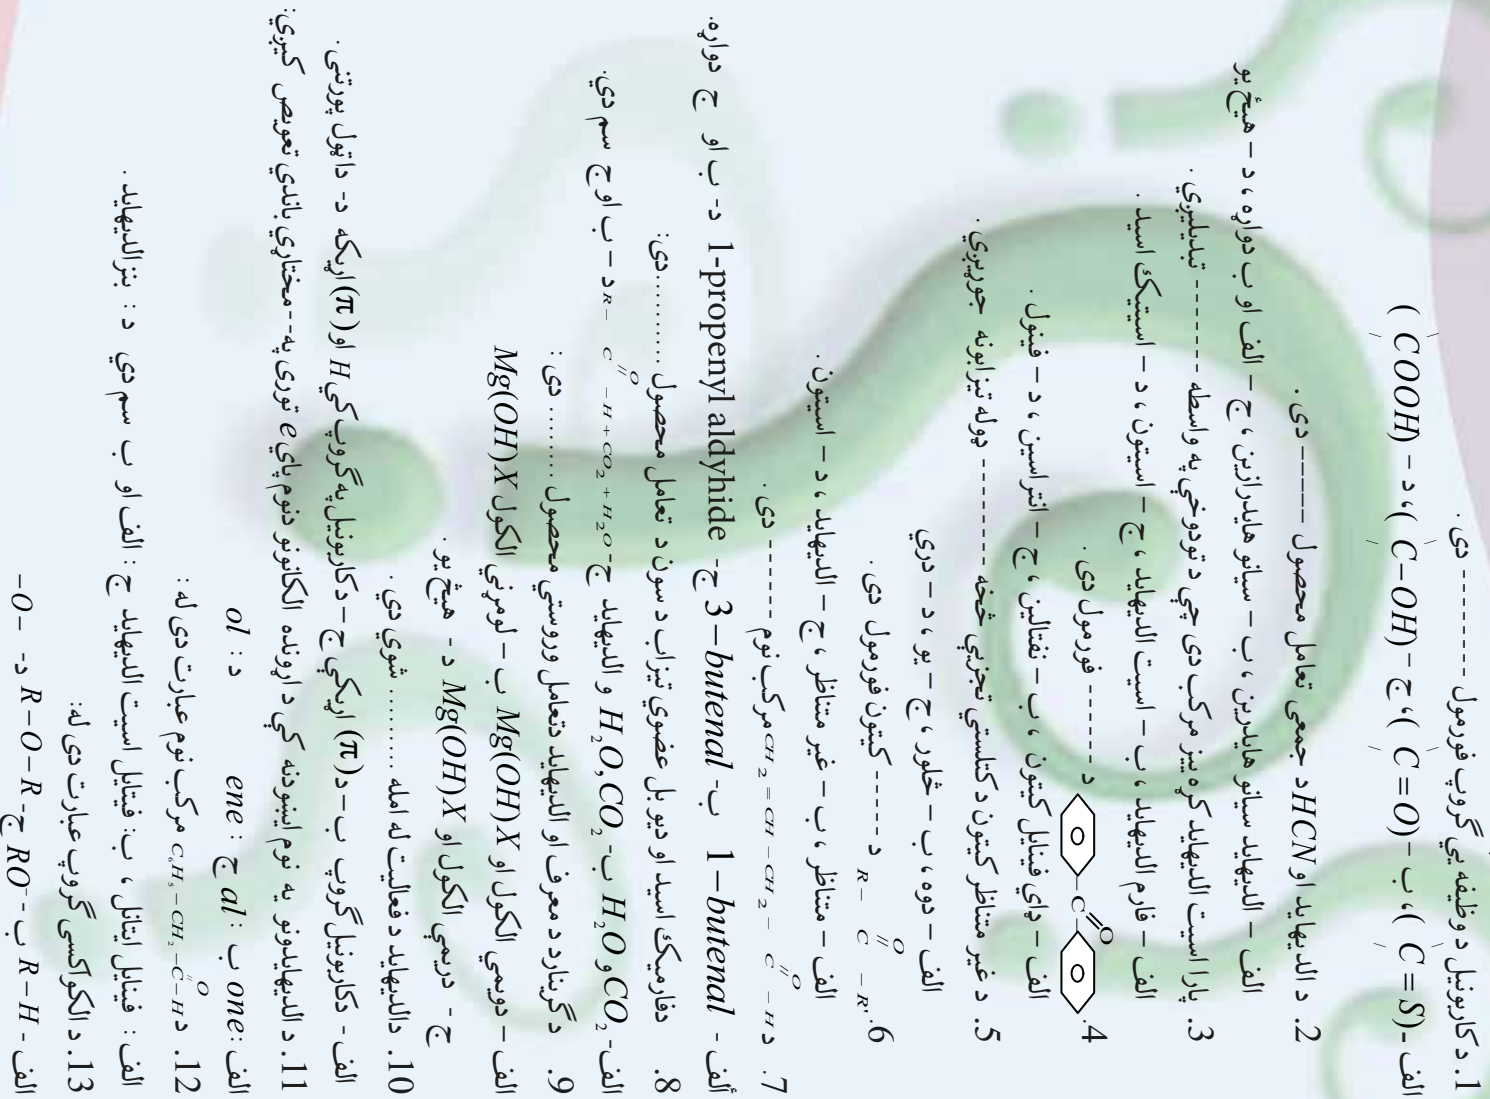 1. د کاربونیل د وظیفه یي گروپ فورمول ---------- دی .
الف ـ (C = S) ، ب – (C = O) ، ج – (C – OH) ، د – (COOH)
2. د الدیهاید او HCN د جمعی تعامل محصول ----- دی .
الف – الدیهاید سیانو هایدرین ، ب – سیانو هایدرازین ، ج – الف او ب دواړه ، د – هیڅ یو
3. پارا اسیت الدیهاید کړه ییز مرکب دی چي د تودوخي په واسطه -------- تبدیلیږي .
الف – فارم الدیهاید ، ب – اسیت الدیهاید ، ج – اسیتون ، د – اسیتیک اسید .
4. C O د ------ فورمول دی .
الف – دای فینایل کیتون ، ب – نفتالین ، ج – انتراسین ، د – فینول .
5. د غیر متناظر کیتون د کتلستي تجزیي څخه ---------- ډوله تیزابونه جوړیږي .
الف – دوه ، ب – څلور ، ج – یو ، د – دري
6. R – C (= O) – R' د ------ کیتون فورمول دی .
الف – متناظر ، ب – غیر متناظر ، ج – الدیهاید ، د – اسیتون .
7. د CH₂ = CH – CH₂ – C (= O) – H مرکب نوم ------ دی .
ألف - 1 – butenal ب- 3 – butenal ج- 1-propenyl aldyhide د- ب او ج دواړه.
8. دفارمیک اسید او دیو بل عضوي تیزاب د سون د تعامل محصول .......... دی:
الف- CO₂ و H₂O ب- H₂O,CO₂ و الدیهاید ج- R – C (= O) – H + CO₂ + H₂O د – ب او ج سم دي.
9. د گرینارد د معرف او الدیهاید دتعامل وروستي محصول ......... دی :
الف – دویمي الکول او Mg(OH)X ب – لومړني الکول Mg(OH)X
ج - دریمي الکول او Mg(OH)X د - هیڅ یو .
10. دالدیهاید د فعالیت له امله ......... شوي دي .
الف - دکاربونیل گروپ ب – د (π) اړیکي ج - دکاربونیل په گروپ کي H او (π) اړیکه د- داټول پورتنی .
11. د الدیهایدونو په نوم ایښودنه کي د اړونده الکانونو دنوم پاي e توری په--مختاړي باندي تعویض کیږي:
الف : one ب : al ج : ene د : ol
12. د C₆H₅ – CH₂ – C (= O) – H مرکب نوم عبارت دی له :
الف : فینایل ایتانل ، ب: فینایل اسیت الدیهاید ج : الف او ب سم دي د : بنزالدیهاید .
13. د الکواکسی گروپ عبارت دی له:
الف - R – H ب - RO⁻ ج- R – O – R د- – O –